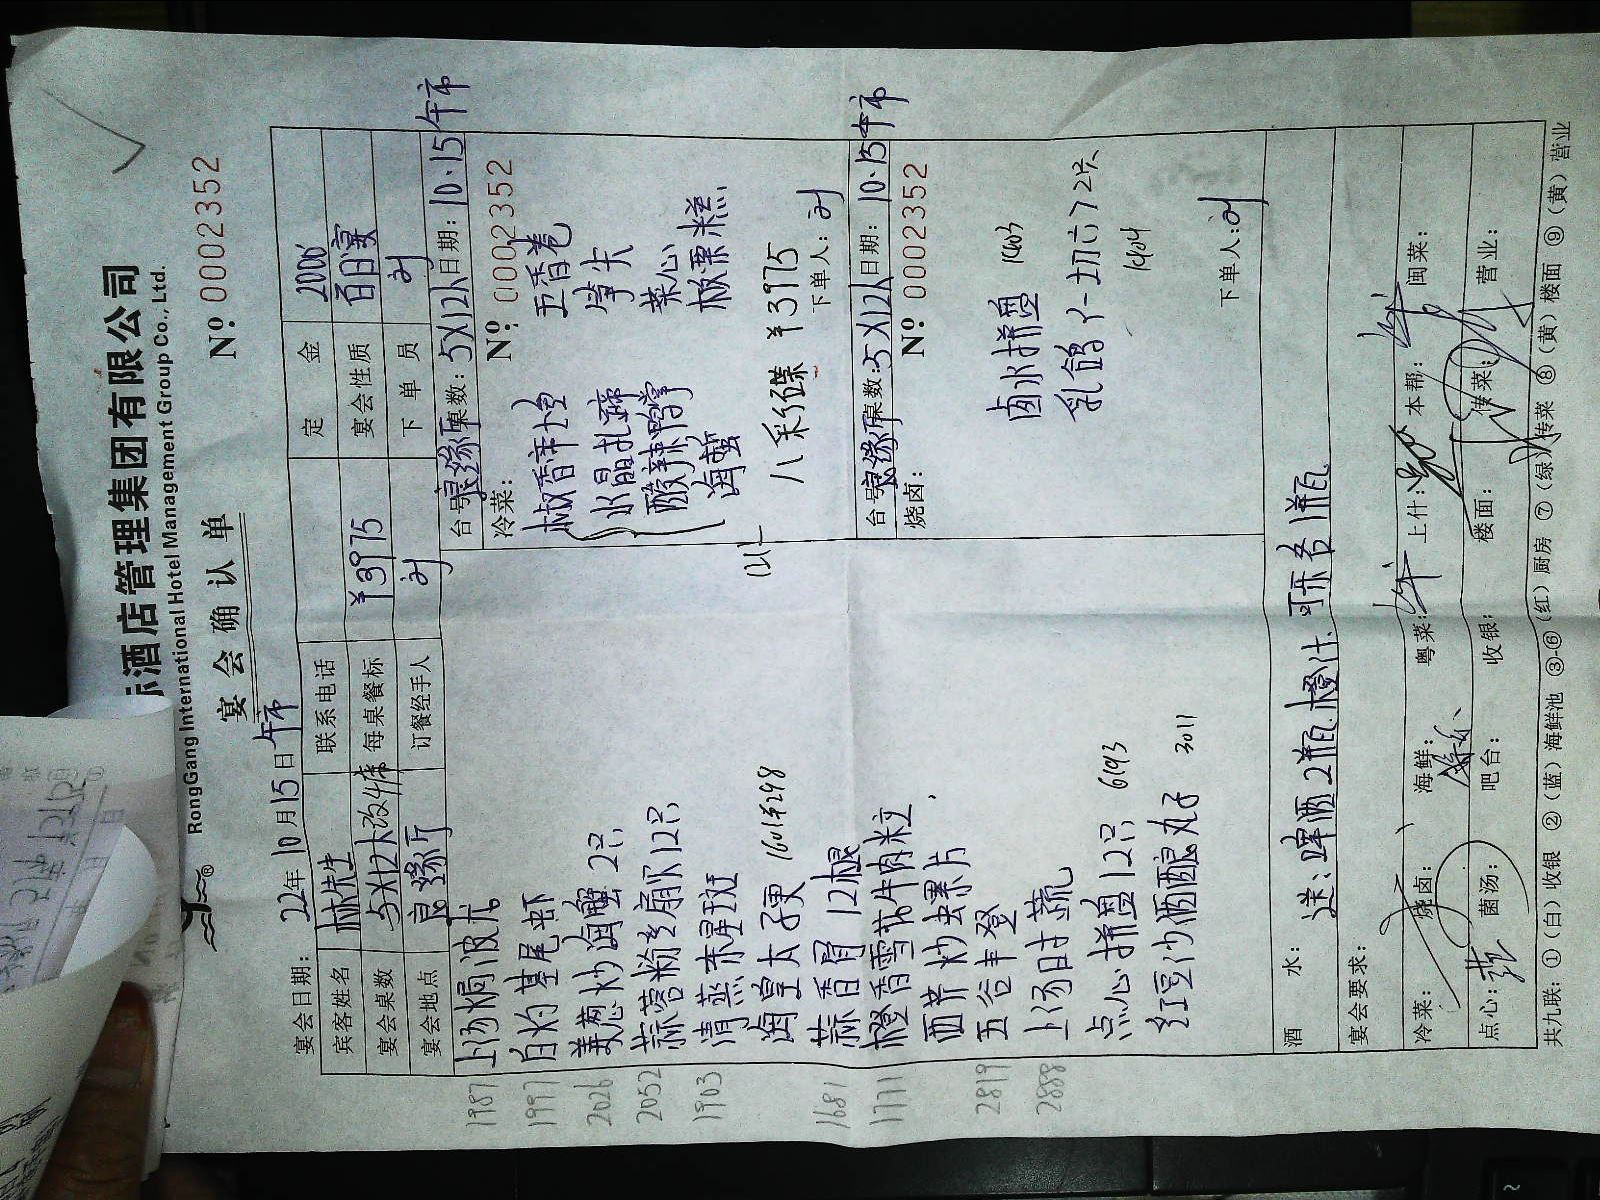 际酒店管理集团有限公司
RongGang International Hotel Management Group Co., Ltd.
®
宴会确认单
№ 0002352
宴会日期: 22年10月15日 午市
宾客姓名 林先生 联系电话 定金 2000
宴会桌数 5X12人改1席 每桌餐标 ¥3975 宴会性质 百日宴
宴会地点 良缘厅 订餐经手人 刘 下单员 刘
1987 上汤焗波龙
1997 白灼基尾虾
2026 姜葱炒海蟹2只
2052 蒜蓉粉丝扇贝12只
1903 清蒸东星斑
海皇太子羹 1601至298
1681 蒜香骨12根
1771 橙香雪花牛肉粒
西芹炒螺片
2819 五谷丰登
2888 上汤时蔬
点心拼盘12只 6193
红豆沙酒酿丸子 3011
台号: 良缘厅 桌数: 5X12人 日期: 10.15午市
冷菜: № 0002352
五香卷
水晶扎蹄 笋尖
酸辣鸭掌 菜心
海蜇 板栗糕
八彩碟 ¥3975
下单人: 刘
台号 良缘厅 桌数: 5X12人 日期: 10.15午市
烧卤: № 0002352
卤水拼盘 1403
乳鸽 1切六 2只
1404
下单人: 刘
酒水: 送: 啤酒2瓶 橙汁、可乐各1瓶
宴会要求:
冷菜: 烧卤: 海鲜: 粤菜: 上什: 本帮: 闽菜:
点心: 菌汤: 吧台: 收银: 楼面: 传菜: 营业:
共九联: ①(白)收银 ②(蓝)海鲜池 ③-⑥(红)厨房 ⑦(绿)传菜 ⑧(黄)楼面 ⑨(黄)营业